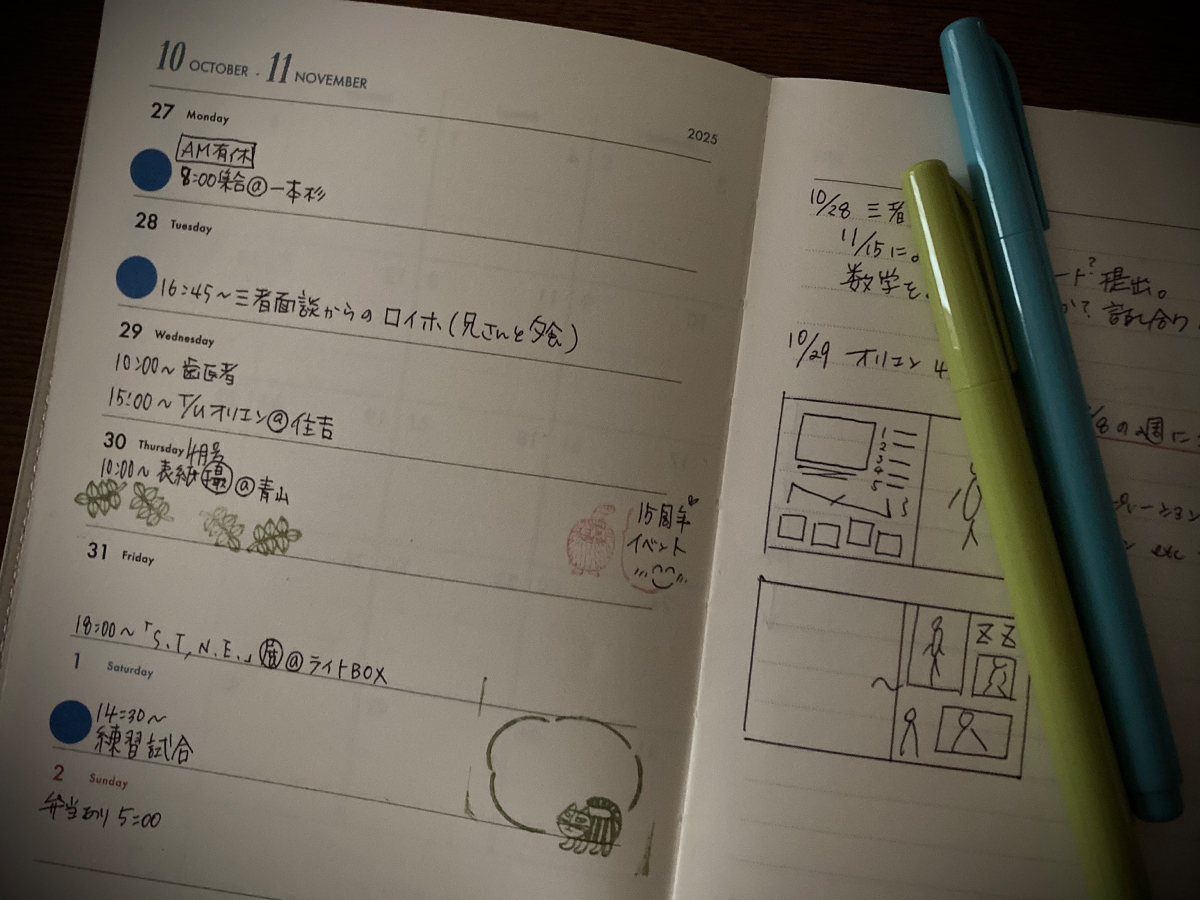 10 OCTOBER - 11 NOVEMBER
2025
27 Monday
AM有休
8:00集合@一本杉
28 Tuesday
16:45～三者面談からの ロイホ(兄さんと夕食)
29 Wednesday
10:00～歯医者
15:00～T/Uオリエン@住吉
30 Thursday
4月号
10:00～表紙撮@青山
15周年
イベント
31 Friday
18:00～「S.T,N.E.」展@ライトBOX
1 Saturday
14:30～
練習試合
2 Sunday
弁当あり 5:00
10/28 三者
ート?提出。
11/15に。
数学を、
か? 話し合り
10/29 オリエン 4
/8の週に
1
2
3
4
5
レーション
etc
ZZ